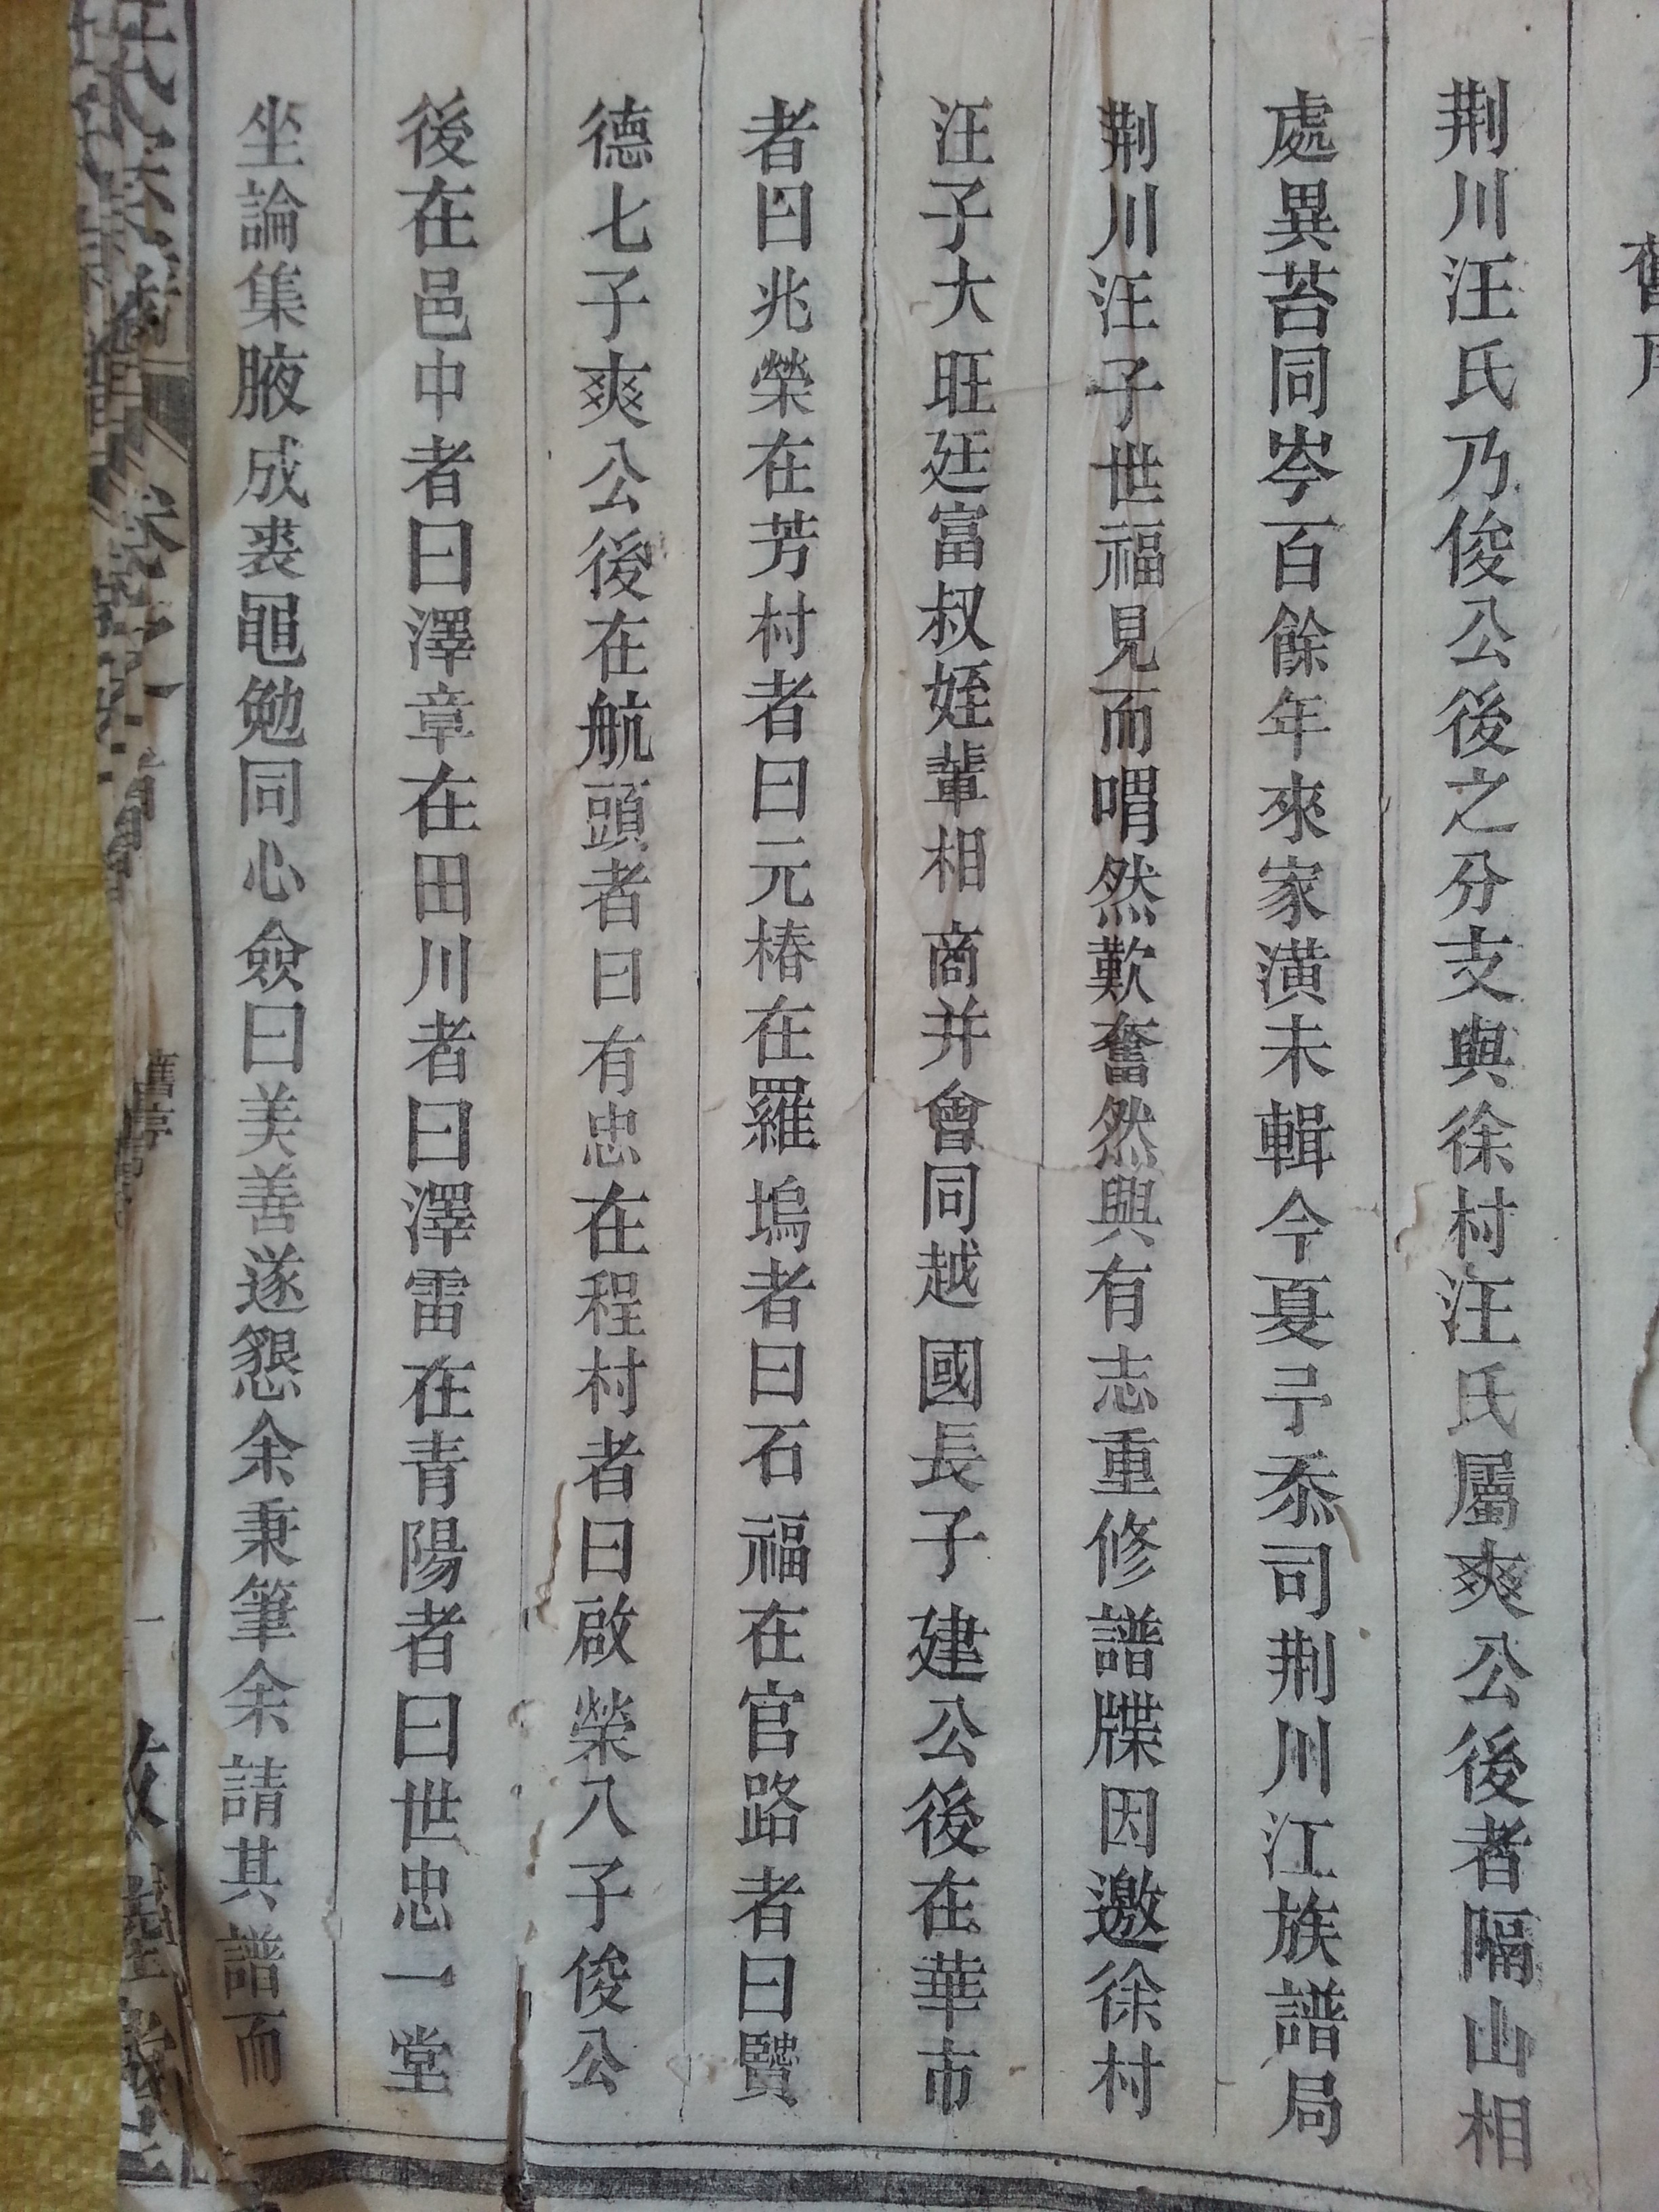 舊序
荆川汪氏乃俊公後之分支與徐村汪氏屬爽公後者隔山相
處異苔同岑百餘年來家潢未輯今夏予忝司荆川江族譜局
荆川汪子世福見而喟然歎奮然興有志重修譜牒因邀徐村
汪子大旺廷富叔姪輩相商并會同越國長子建公後在華市
者曰兆榮在芳村者曰元椿在羅塢者曰石福在官路者曰贒
德七子爽公後在航頭者曰有忠在程村者曰啟榮八子俊公
後在邑中者曰澤章在田川者曰澤雷在青陽者曰世忠一堂
坐論集腋成裘黽勉同心僉曰美善遂懇余秉筆余請其譜而